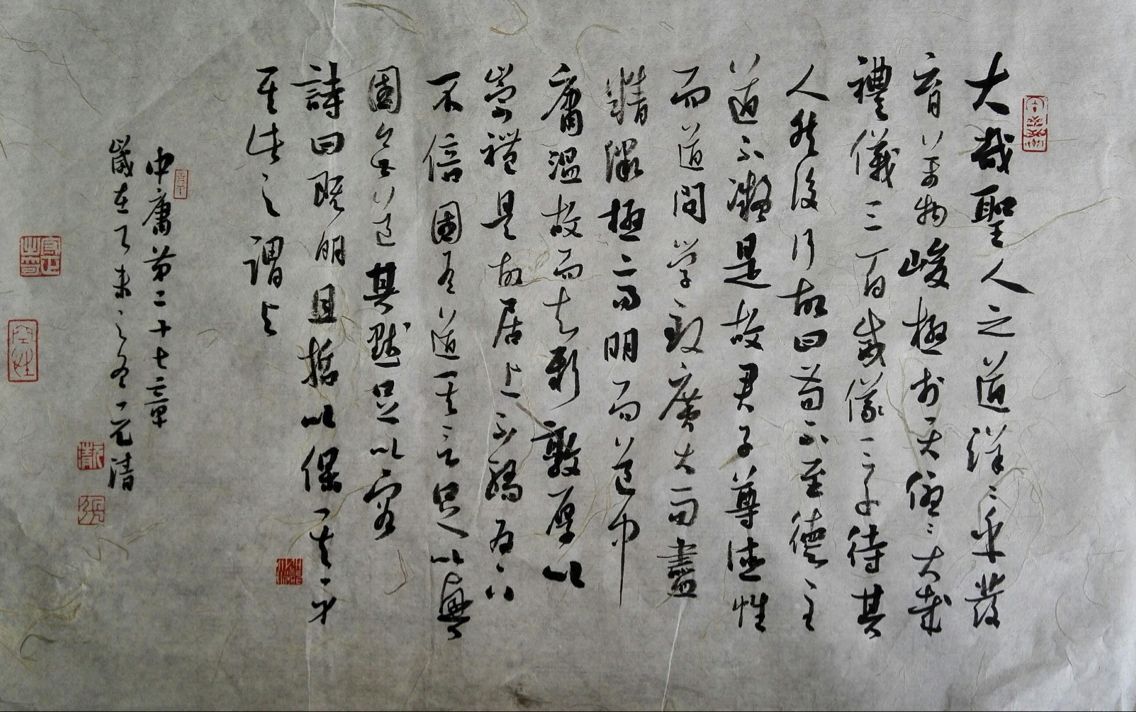 大哉聖人之道洋〻乎發
育萬物峻極于天優〻大哉
禮儀三百威儀三千待其
人然後行故曰苟不至德至
道不凝是故君子尊德性
而道問學致廣大而盡
精微極高明而道中
庸溫故而知新敦厚以
崇禮是故居上不驕為下
不倍國有道其言足以興
國無道其默足以容
詩曰既明且哲以保其身
其此之謂與
中庸第二十七章
歲在丁未之冬一元清